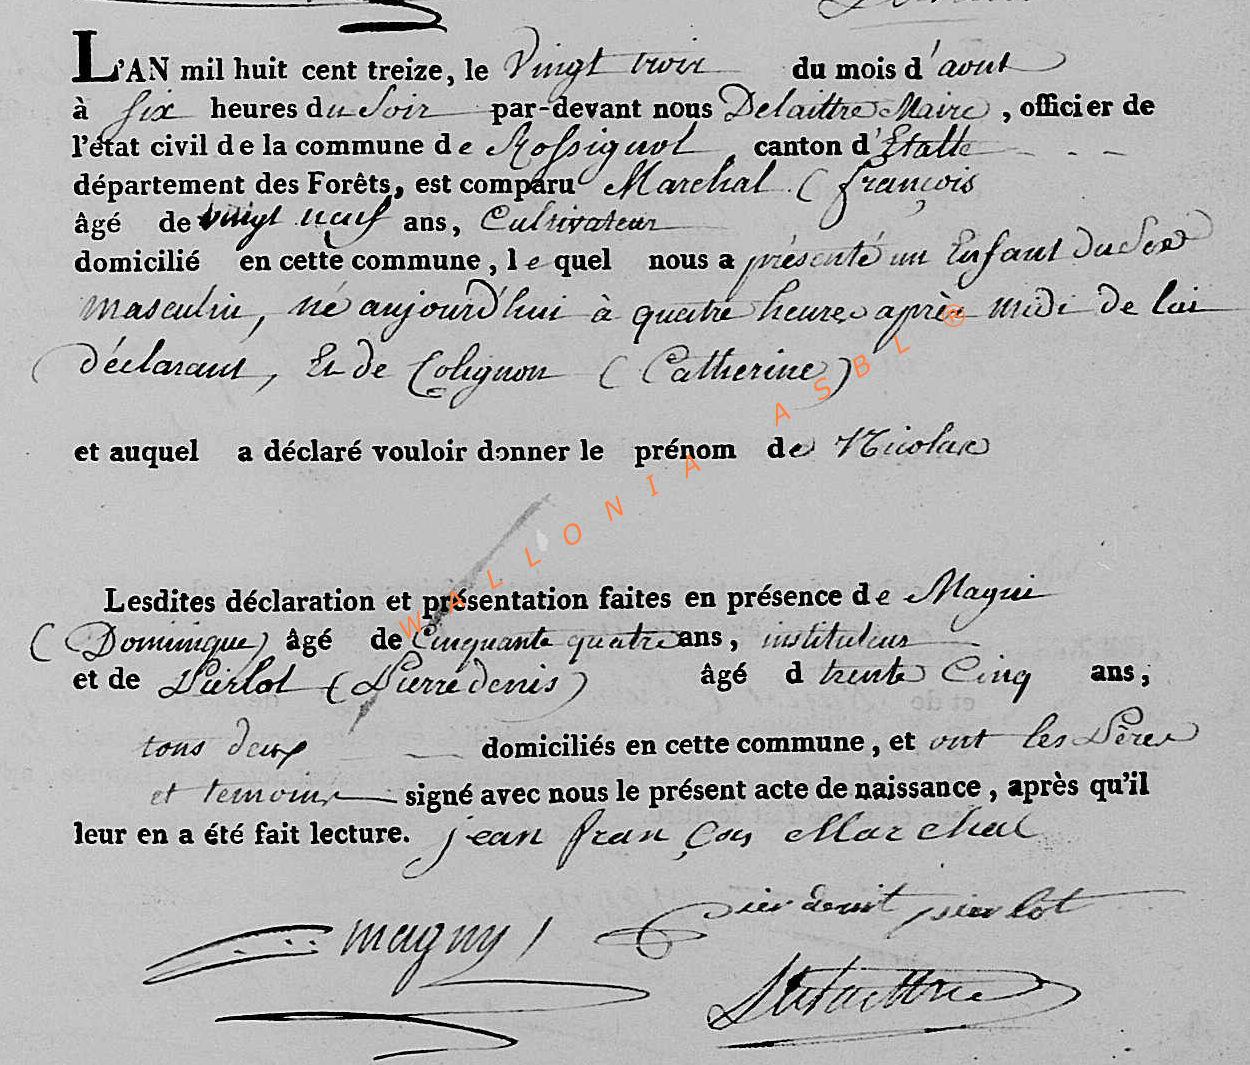 L'AN mil huit cent treize, le Vingt trois du mois d'aout
à six heures du Soir par-devant nous Delaittre Maire, officier de
l'état civil de la commune de Rossignol, canton d'Etalle
département des Forêts, est comparu Marchal (françois
âgé de vingt neuf ans, Cultivateur
domicilié en cette commune, le quel nous a présenté un Enfant du Sexe
masculin, né aujourd'hui à quatre heures après midi de lui
déclarant, Et de Colignon (Catherine)
et auquel a déclaré vouloir donner le prénom de Nicolas
WALLONIA ASBL ®
Lesdites déclaration et présentation faites en présence de Magni
(Dominique) âgé de Cinquante quatre ans, instituteur
et de Pierlot (Pierre denis) âgé d trente Cinq ans,
tous deux domiciliés en cette commune, et ont les Pères
et temoins signé avec nous le présent acte de naissance, après qu'il
leur en a été fait lecture. jean françois Marchal
magny pierlot
Delaittre